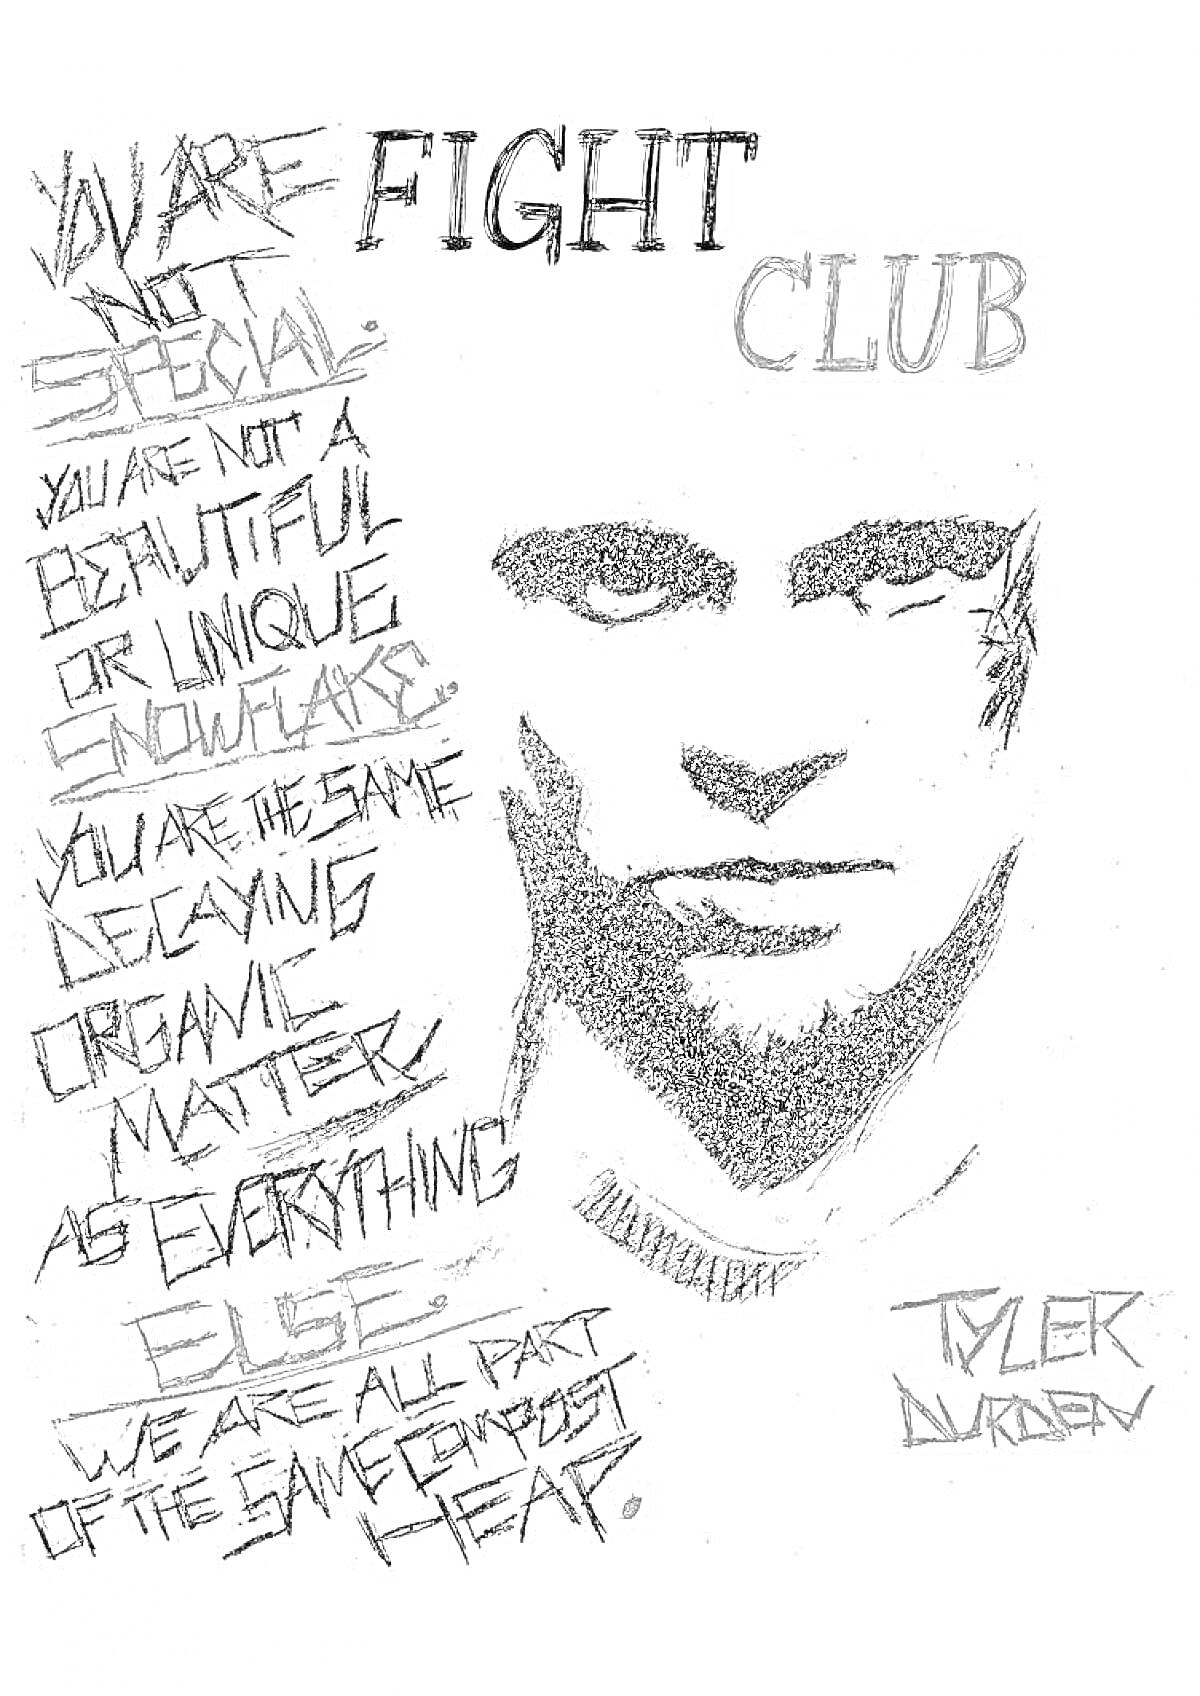 FIGHT
CLUB
YOU ARE
NOT
SPECIAL.
YOU ARE NOT A
BEAUTIFUL
OR UNIQUE
SNOWFLAKE.
YOU ARE THE SAME
DECAYING
ORGANIC
MATTER
AS EVERYTHING
ELSE.
WE ARE ALL PART
OF THE SAME COMPOST
HEAP.
TYLER
DURDEN